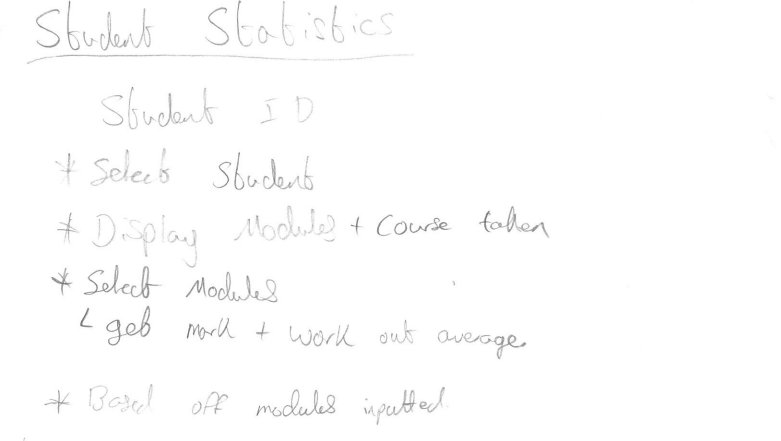 Student Statistics
Student ID
* Select Student
* Display Modules + Course taken
* Select Modules
L get mark + work out average.
* Based off modules inputted.